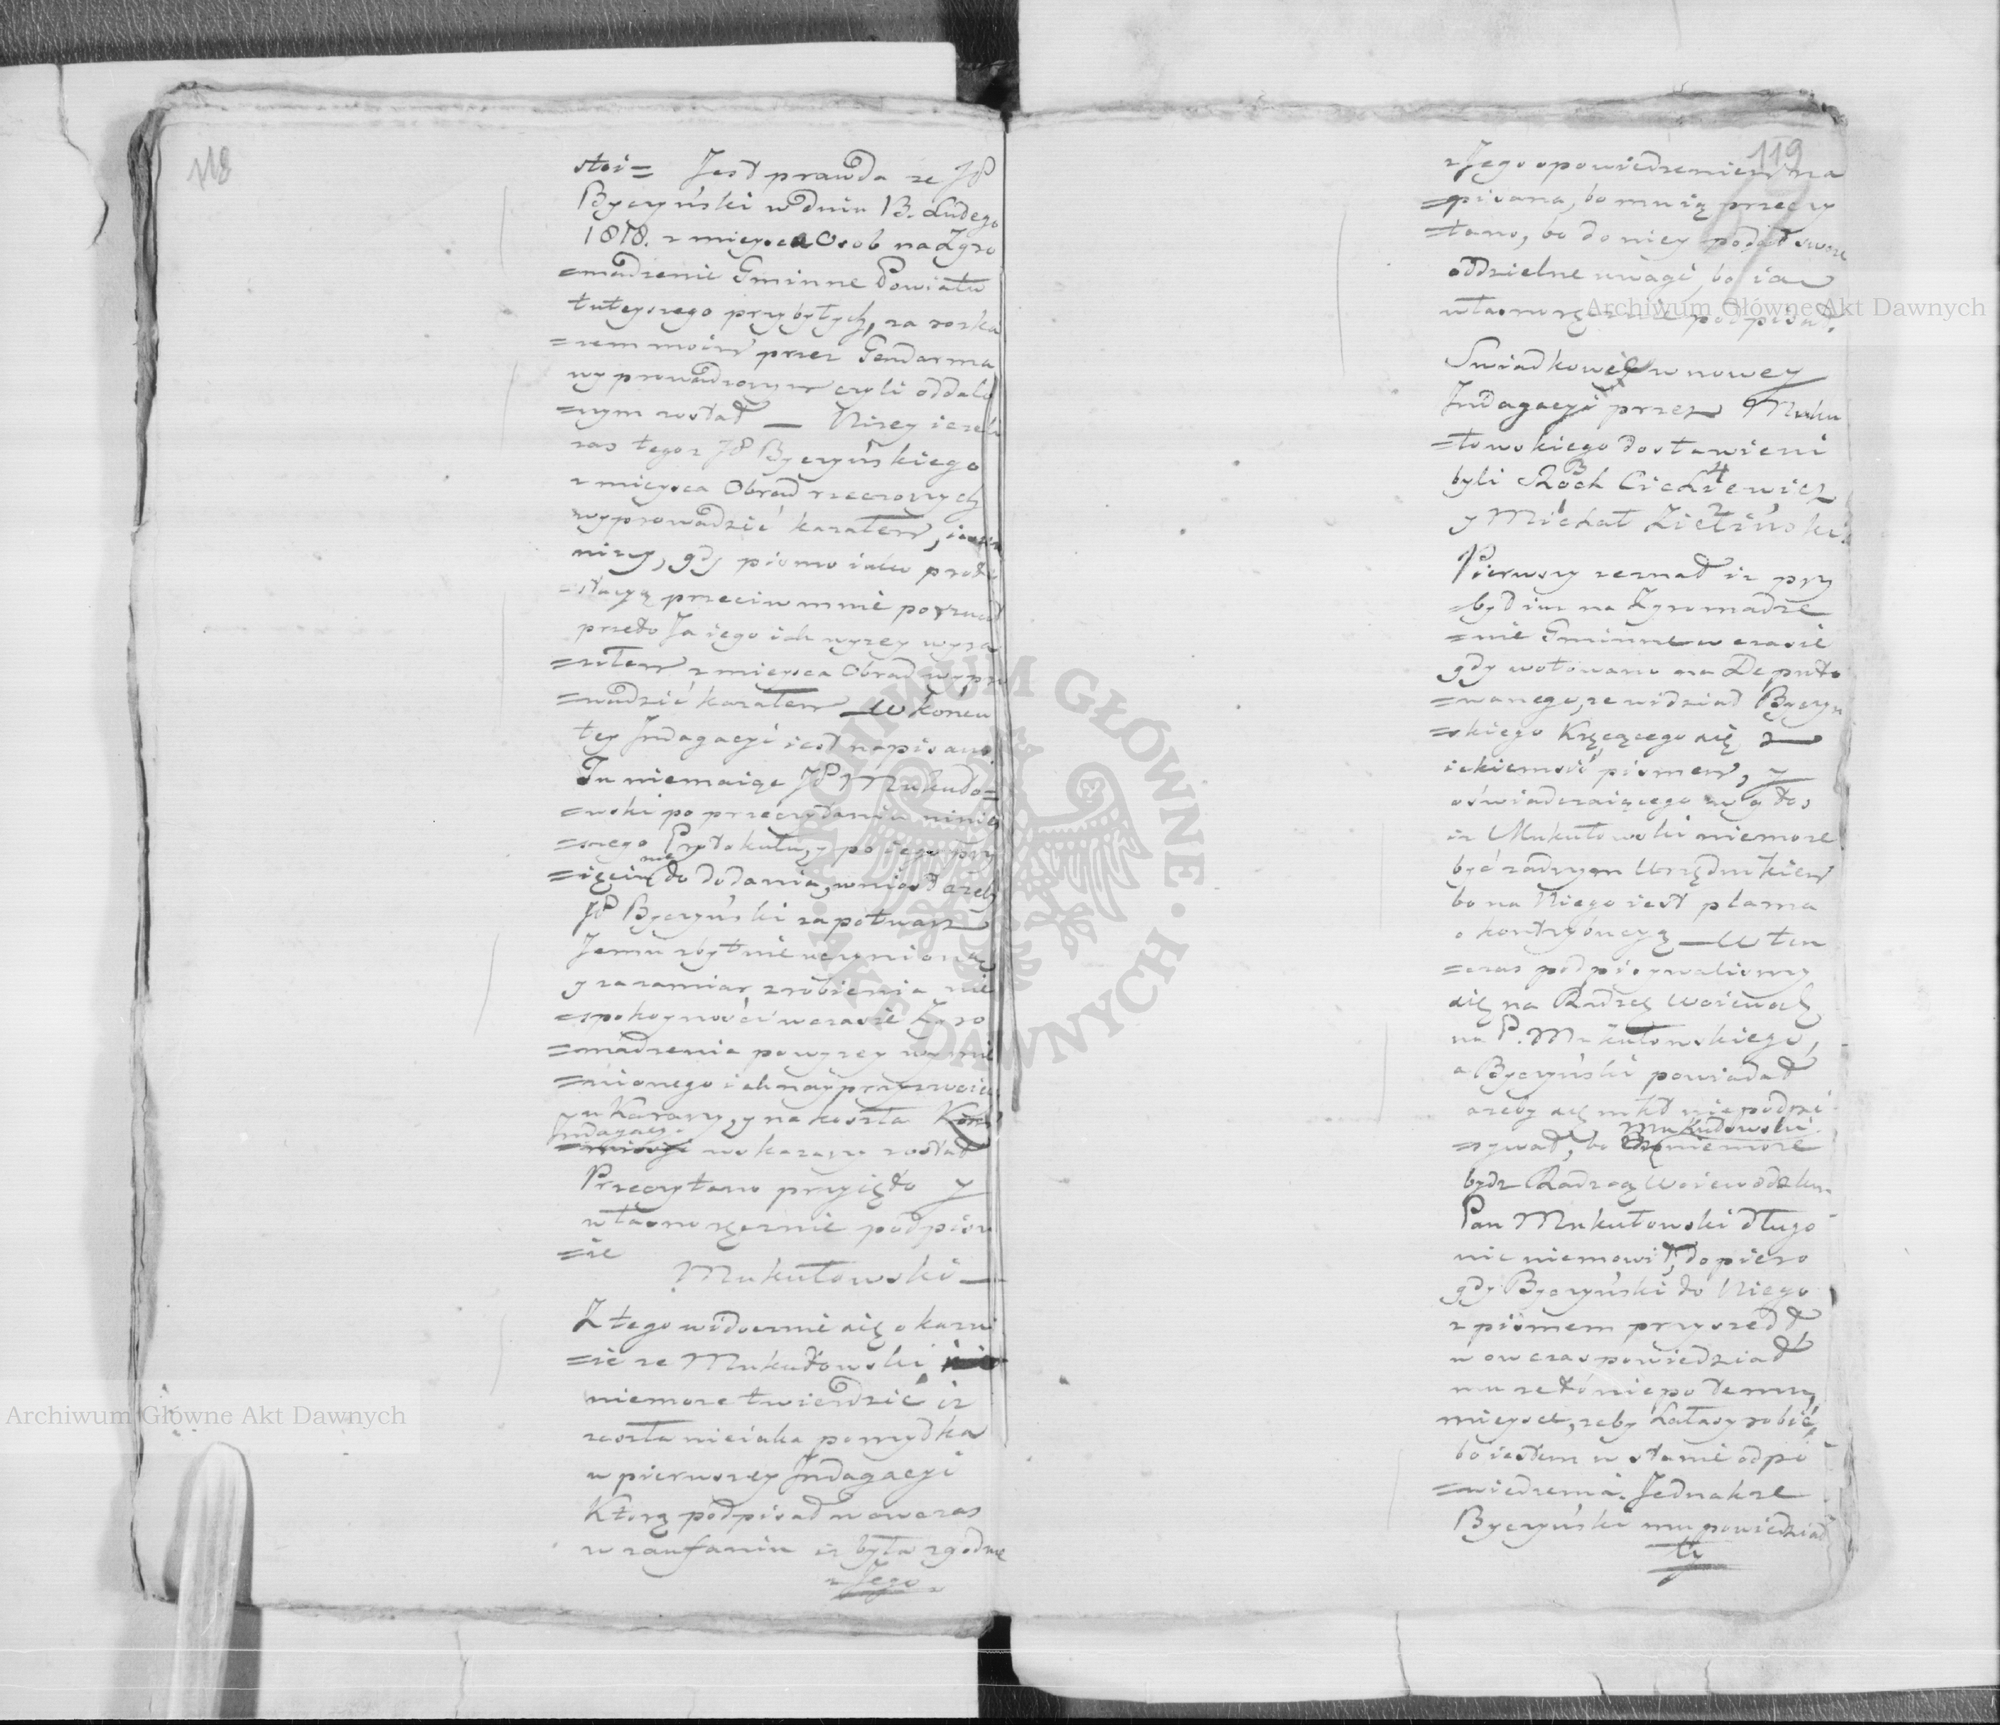 118
stoi= Jest prawda że JP
Byczyński w dniu 13. Lutego
1818. z mieysca Osob na Zgro
=madzenie Gminne Powiatu
tuteyszego przybyłych, za rozka
=zem moim przez Gendarma
wyprowadzonym czyli oddalo
=nym został — Niżey ieszcze
raz tegoż JP Byczyńskiego
z mieysca Obrad rzeczonych
wyprowadzić kazałem,
niżey, gdy pismo iako prote
=stacyą przeciw mnie
przeto Ja iego iak wyżey wyra
=ziłem z mieysca Obrad wypro
=wadzić kazałem — W końcu
tey Indagacyi iest napisano
Tu niemaiąc JP Mukuło=
=wski po przeczytaniu ninie
=szego Protokułu, y po iego przy
=ięciu nic do dodania, wniosł ażeby
JP Byczyński za potwarz
Jemu zbytnie uczynioną
y za zamiar zrobienia nie
=spokoyności w czasie Zgro
=madzenia powyżey wymie
=nionego iak nayprzyzwoiciey
ukarany, y na koszta
Indagac:
wskazany został
Przeczytano przyięto y
własnoręcznie podpisu
=ie
Mukułowski —
Z tego widocznie się okazu
=ie że Mukułowski
niemoże twierdzić iż
zaszła nieiaka pomyłka
w pierwszey Indagacyi
Którą podpisał w owczas
w zaufaniu iż była zgodnie
z Jego
119
z Jego opowiedzeniem na
=pisana, bo mu ią przeczy
=tano, bo do niey podał swoie
oddzielne uwagi, bo ią
własnoręcznie podpisał.
Swiadkowie w nowey
Indagacyi przez Muku
=łowskiego dostawieni
byli Roch Cichlewicz
y Michał Zieliński.
Pierwszy zeznał iż przy
=był iuż na Zgromadze
=nie Gminne w czasie
gdy wotowano na Deputo
=wanego, że widział Byczyń
=skiego Kręcącego się z
iakiemsiś pismem, y
oświadczaiącego w głos
iż Mukułowski niemoże
być żadnym Urzędnikiem
bo na Niego iest plama
o kontrybucyą — W ten
=czas podpisywaliśmy
się na Radzcę Woiewodz
na P. Mukułowskiego,
a Byczyński powiadał
ażeby się nikt niepodpi
=sywał, bo Mukułowski niemoże
bydz Radzcą Woiewódzkim
Pan Mukułowski długo
nic niemowił, dopiero
gdy Byczyński do Niego
z pismem przyszedł
w owczas powiedział
mu że to niepotemu
mieysce, żeby hałasy robić,
bo iestem w stanie odpo
=wiedzenia. Jednakże
Byczyński mu powiedział
ty
Archiwum Główne Akt Dawnych
Archiwum Główne Akt Dawnych
ARCHIWUM GŁÓWNE · AKT DAWNYCH ·